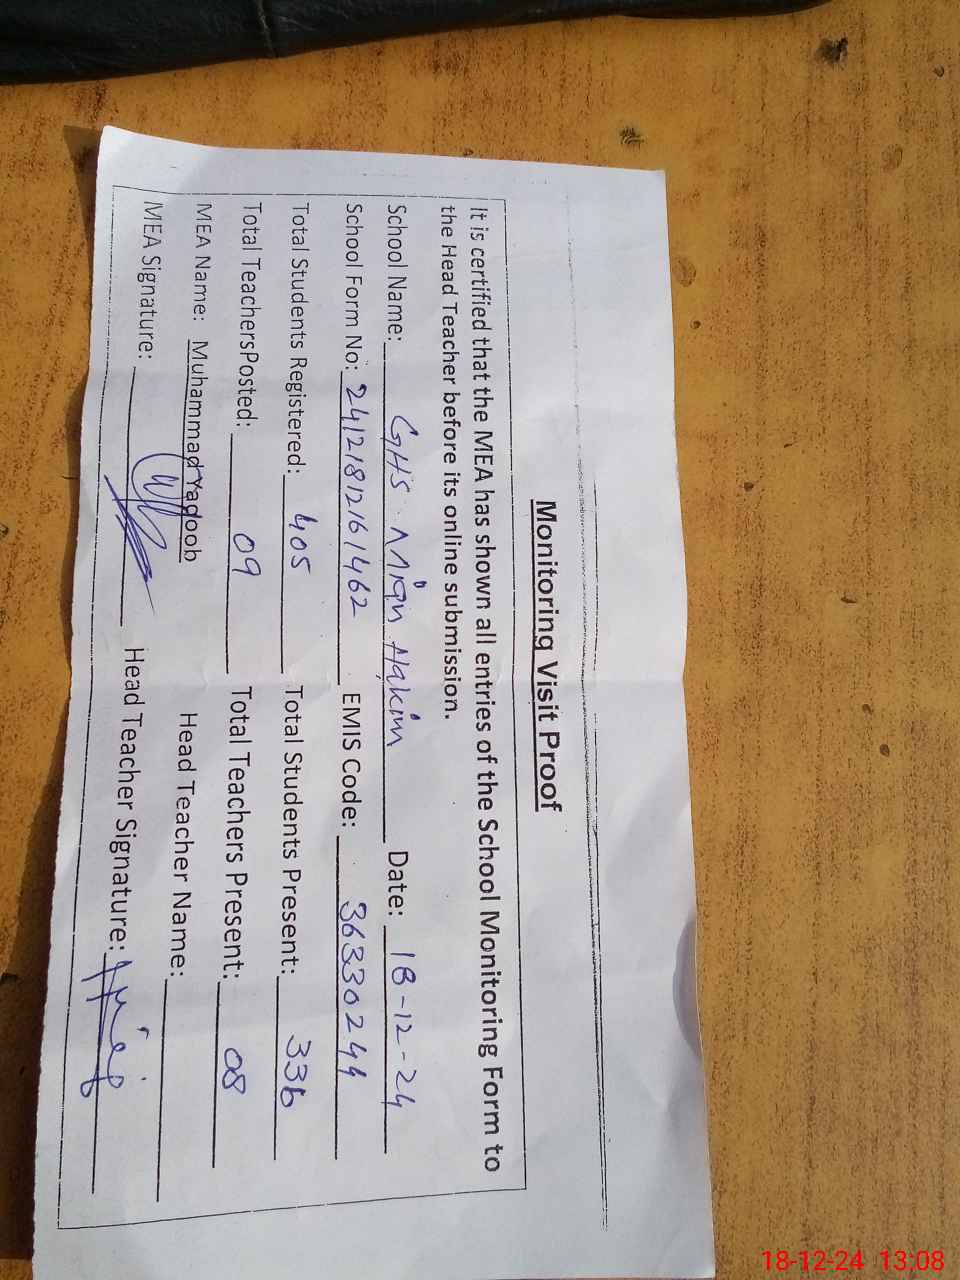 Monitoring Visit Proof
It is certified that the MEA has shown all entries of the School Monitoring Form to
the Head Teacher before its online submission.
School Name: GHS Mian Hakim Date: 18-12-24
School Form No: 24121812161462 EMIS Code: 36330244
Total Students Registered: 405 Total Students Present: 336
Total TeachersPosted: 09 Total Teachers Present: 08
MEA Name: Muhammad Yaqoob Head Teacher Name:
MEA Signature: Head Teacher Signature:
18-12-24 13:08